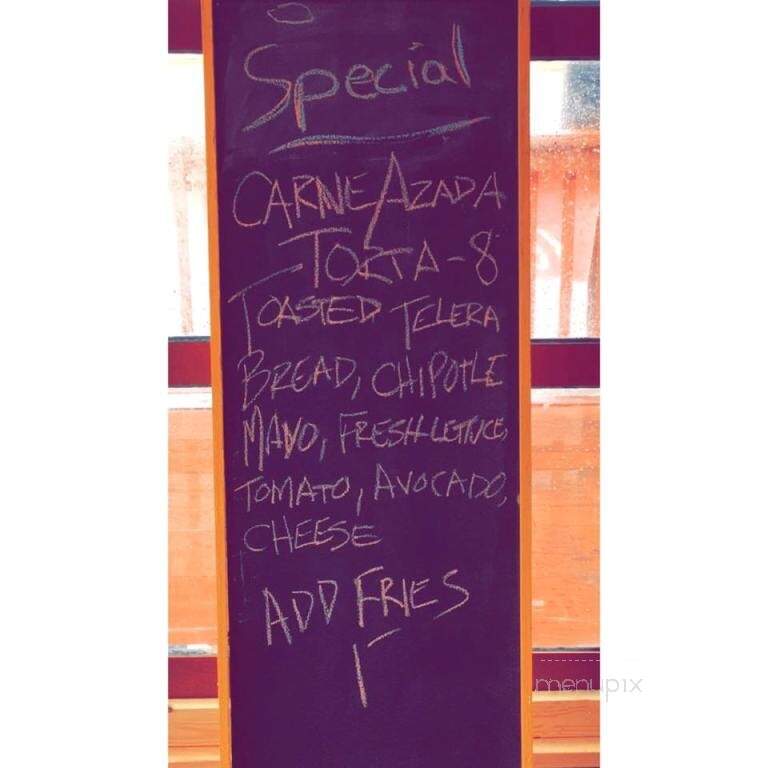 Special
CARNE AZADA
TORTA-8
TOASTED TELERA
BREAD, CHIPOTLE
MAYO, FRESH LETTUCE,
TOMATO, AVOCADO,
CHEESE
ADD FRIES
1
menupix